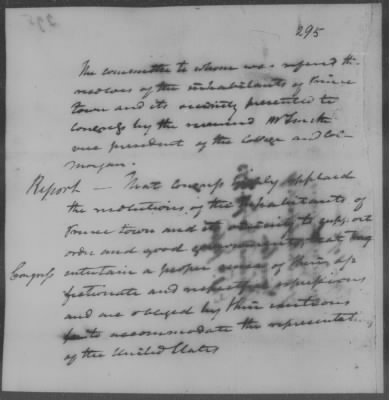 295
The committee to whom was referd the
resolves of the inhabitants of Prince
town and its vicinity presented to
Congress by the reverend Mr Smith
vice president of the College and Col
Morgan.
Report — That Congress highly applaud
the resolutions of the inhabitants of
Prince town and its vicinity to support
order and good government, that they
Congress entertain a proper sense of their af
fectionate and respectful expressions
and are obliged by their
to accommodate the representat
of the United States